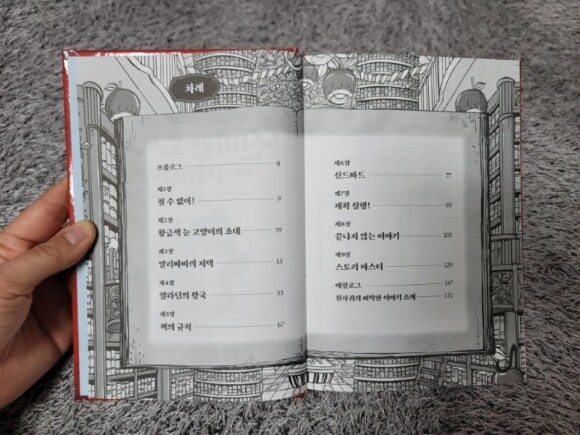 차례
프롤로그 8
제1장
질 수 없어! 9
제2장
황금색 눈 고양이의 초대 19
제3장
알리바바의 저택 33
제4장
알라딘의 왕국 53
제5장
책의 규칙 67
제6장
신드바드 77
제7장
계획 실행! 91
제8장
끝나지 않는 이야기 105
제9장
스토리 마스터 129
에필로그 147
천사귀의 해박한 이야기 소개 151